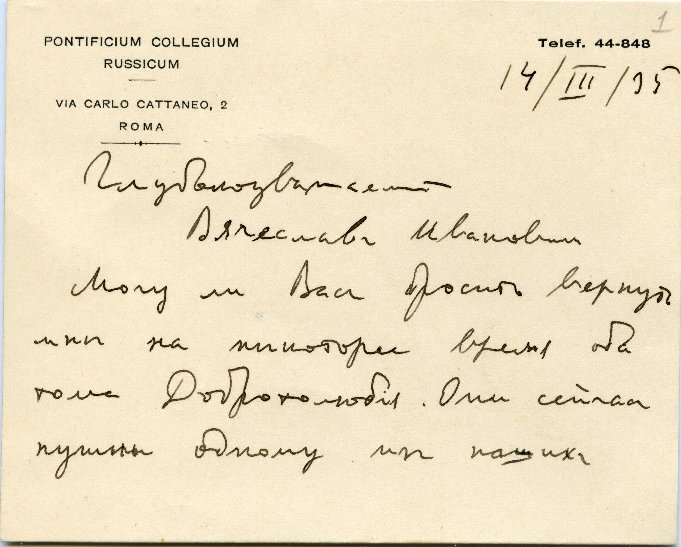 1
PONTIFICIUM COLLEGIUM
RUSSICUM
VIA CARLO CATTANEO, 2
ROMA
Telef. 44-848
14/III/35
Глубокоуважаемый
Вячеславъ Ивановичъ
Могу ли Васъ просить вернуть
мнѣ на нѣкоторое время оба
тома Добротолюбія. Они сейчас
нужны одному изъ нашихъ